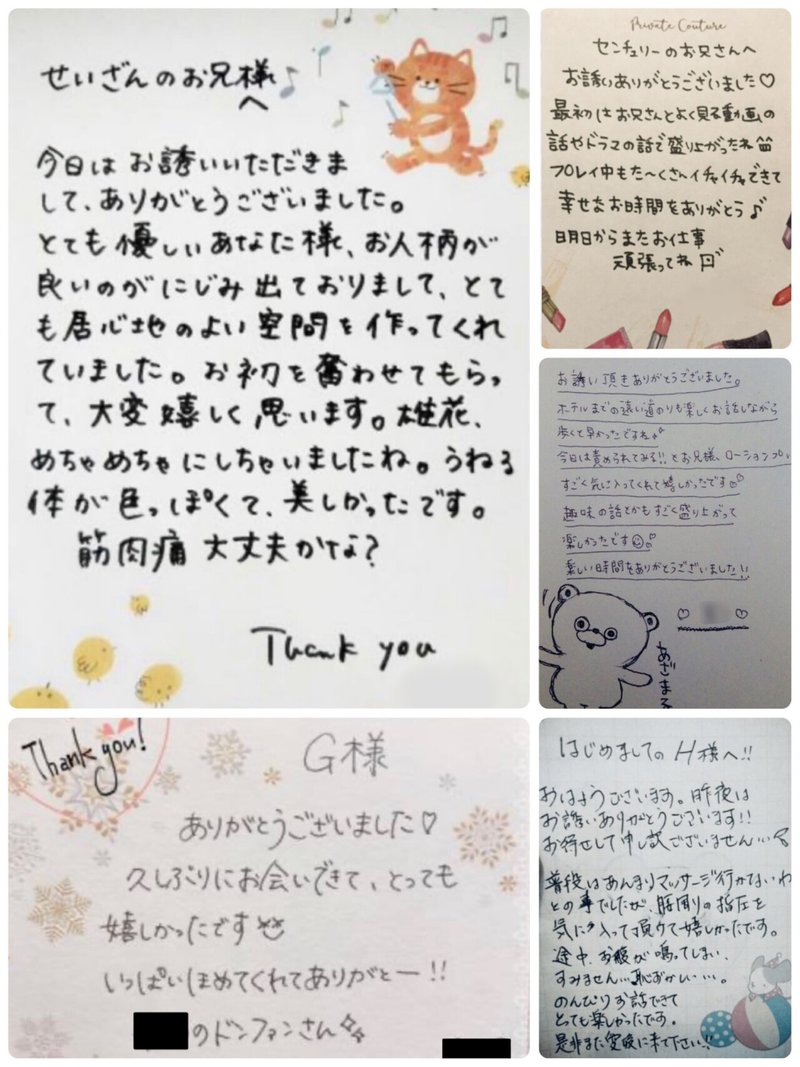 せいざんのお兄様
へ
今日はお誘いいただきま
して、ありがとうございました。
とても優しいあなた様、お人柄が
良いのがにじみ出ておりまして、とて
も居心地のよい空間を作ってくれ
ていました。お初を奪わせてもらっ
て、大変嬉しく思います。雄花、
めちゃめちゃにしちゃいましたね。うねる
体が色っぽくて、美しかったです。
筋肉痛大丈夫かな?
Thank you
Private Couture
センチュリーのお兄さんへ
お誘いありがとうございました♡
最初はお兄さんとよく見る動画の
話やドラマの話で盛り上がったね
プレイ中もた〜くさんイチャイチャできて
幸せなお時間をありがとう♪
明日からまたお仕事
頑張ってね
お誘い頂きありがとうございました。
ホテルまでの遠い道のりも楽しくお話しながら
歩くと早かったですね♪
今日は責められてみる!!とお兄様、ローションプレ
すごく気に入ってくれて嬉しかったです♡
趣味の話とかもすごく盛り上がって
楽しかったです
楽しい時間をありがとうございました!!
Thank you!
G様
ありがとうございました♡
久しぶりにお会いできて、とっても
嬉しかったです
いっぱいほめてくれてありがとー!!
のドンファンさん
はじめましてのH様へ!!
おはようございます。昨夜は
お誘いありがとうございます!!
お待せして申し訳ございません…
普段はあんまりマッサージ行かないわ
との事でしたが、腸周りの指圧を
気に入って頂けて嬉しかったです。
途中、お腹が鳴ってしまい、
すみません…恥ずかしい…。
のんびりお話できて
とっても楽しかったです。
是非また空暖に来て下さい!!